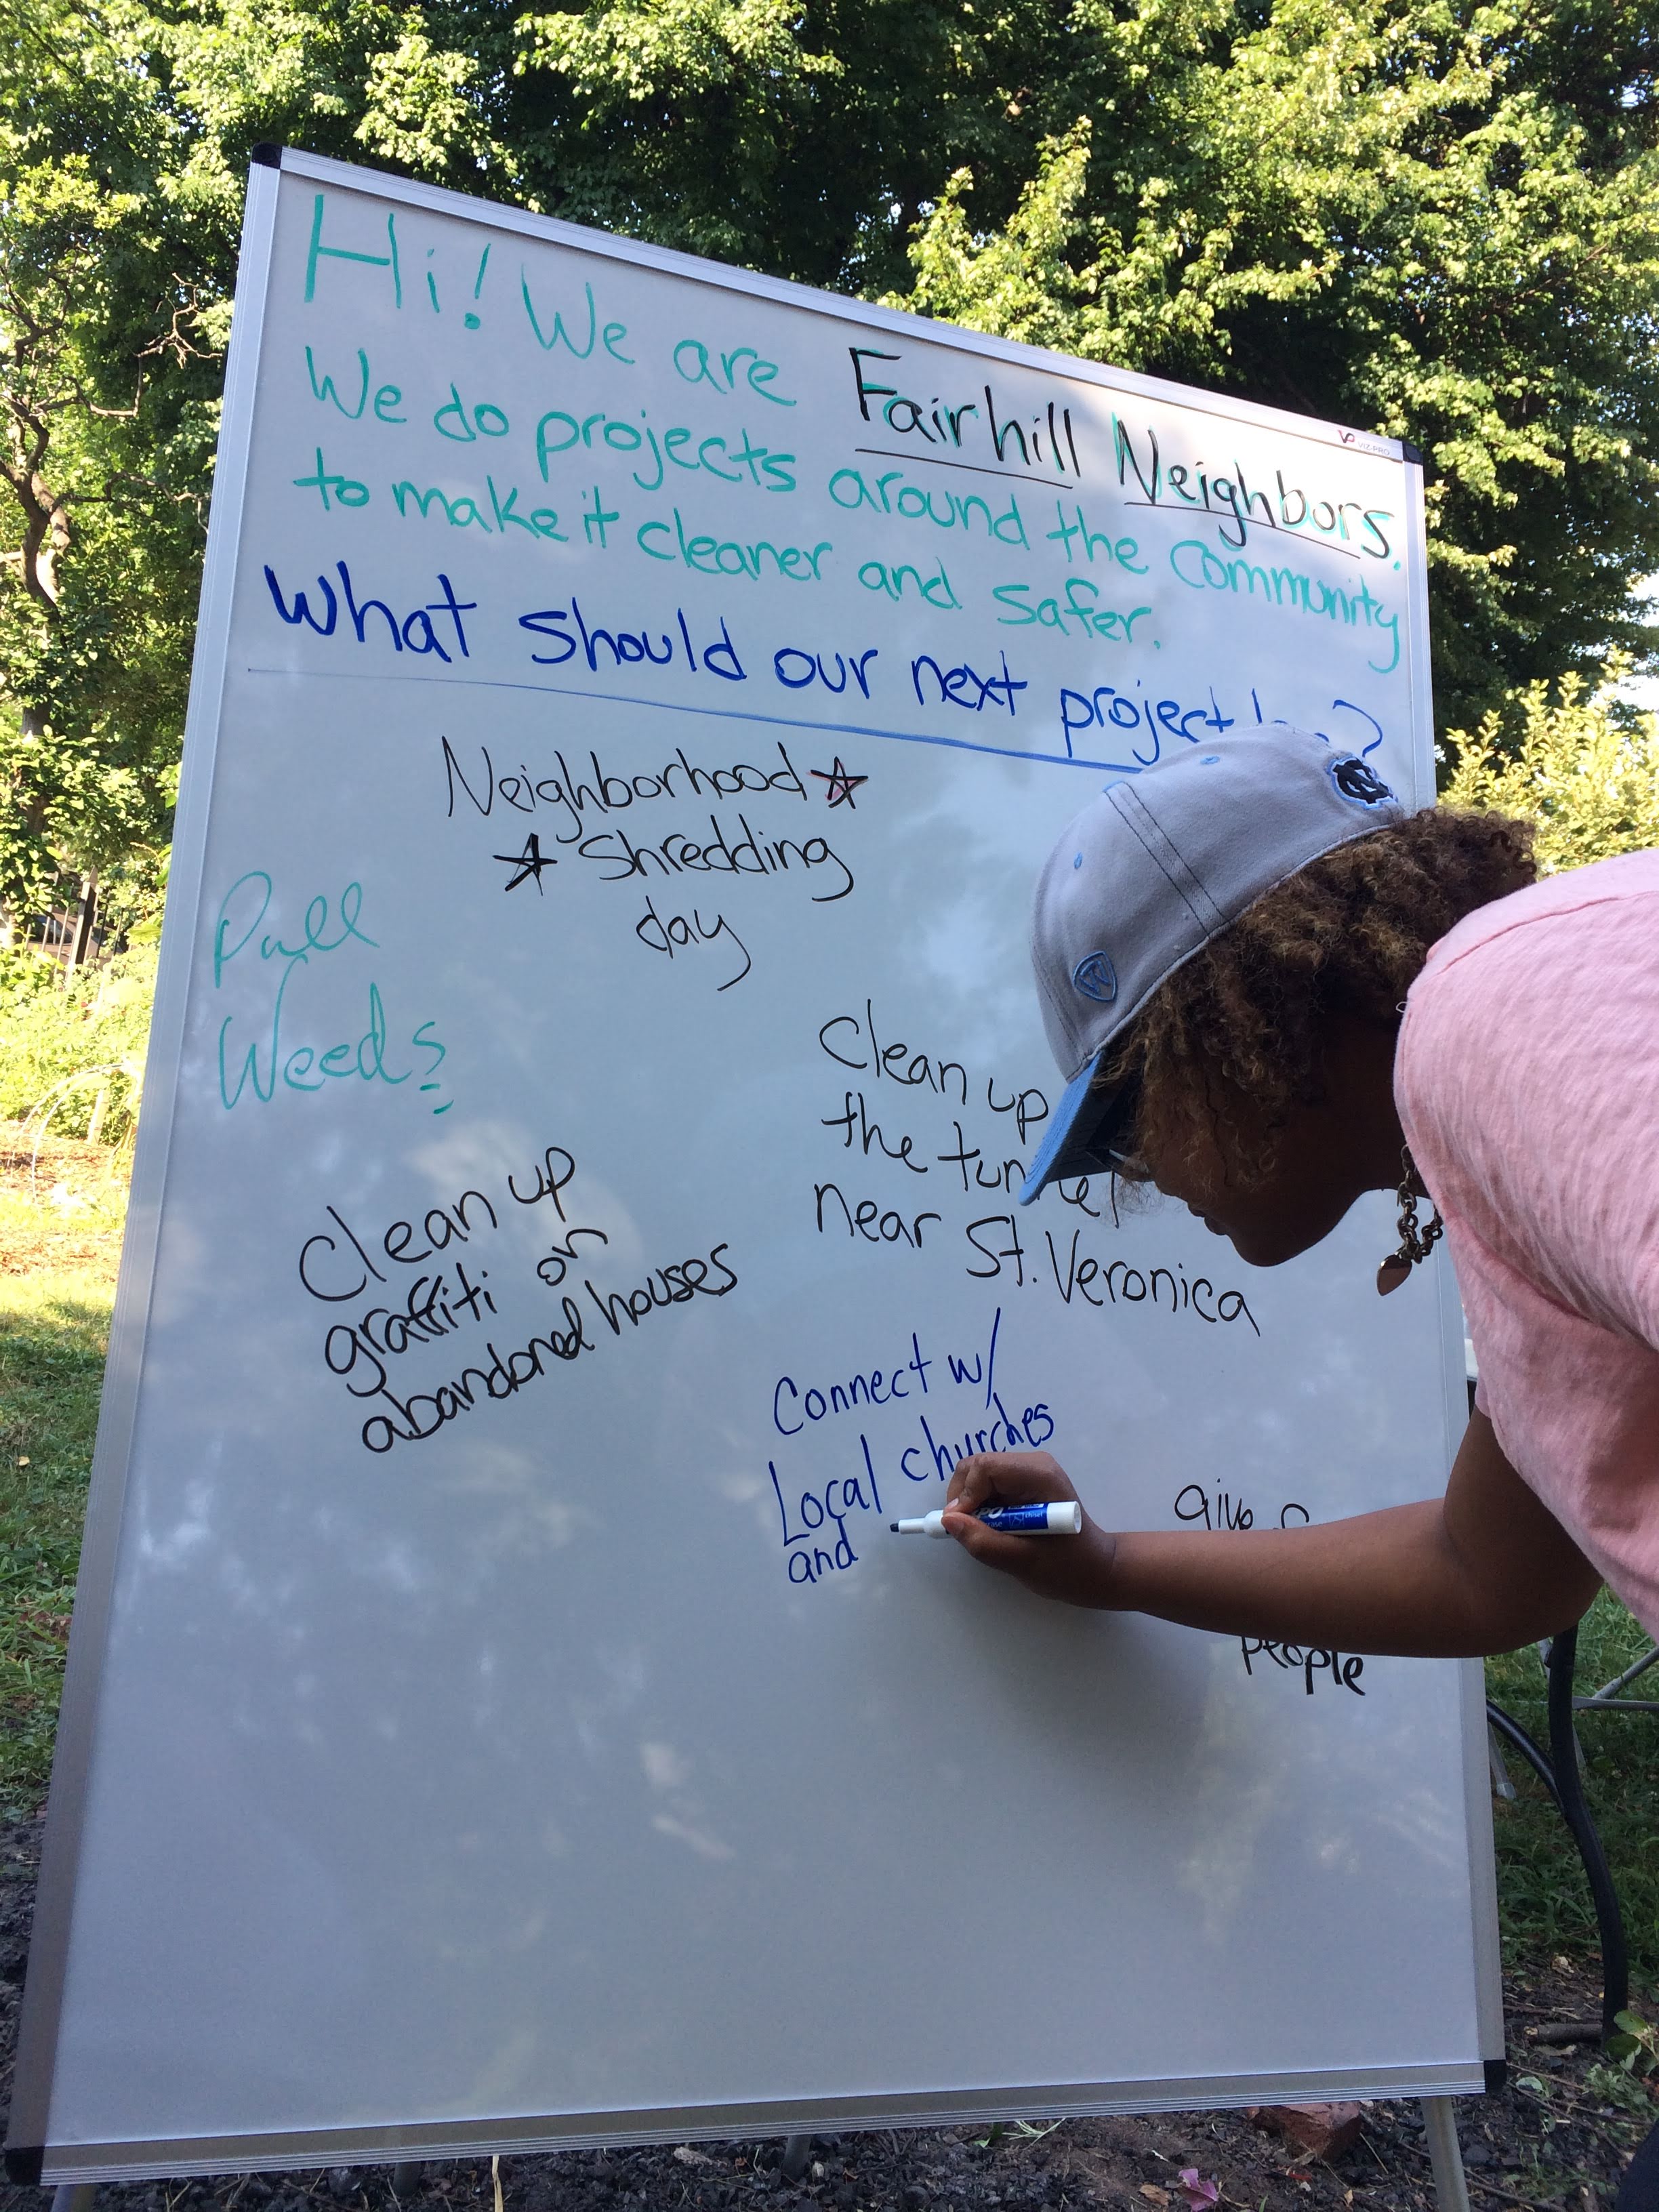 Hi! We are Fairhill Neighbors.
We do projects around the community
to make it cleaner and safer.
What should our next project ?
Neighborhood
Shredding
day
Pull
Weeds
Clean up
the tunnel
near St. Veronica
Clean up
graffiti on
abandoned houses
Connect w/
Local churches
and
give
people
VIZ-PRO